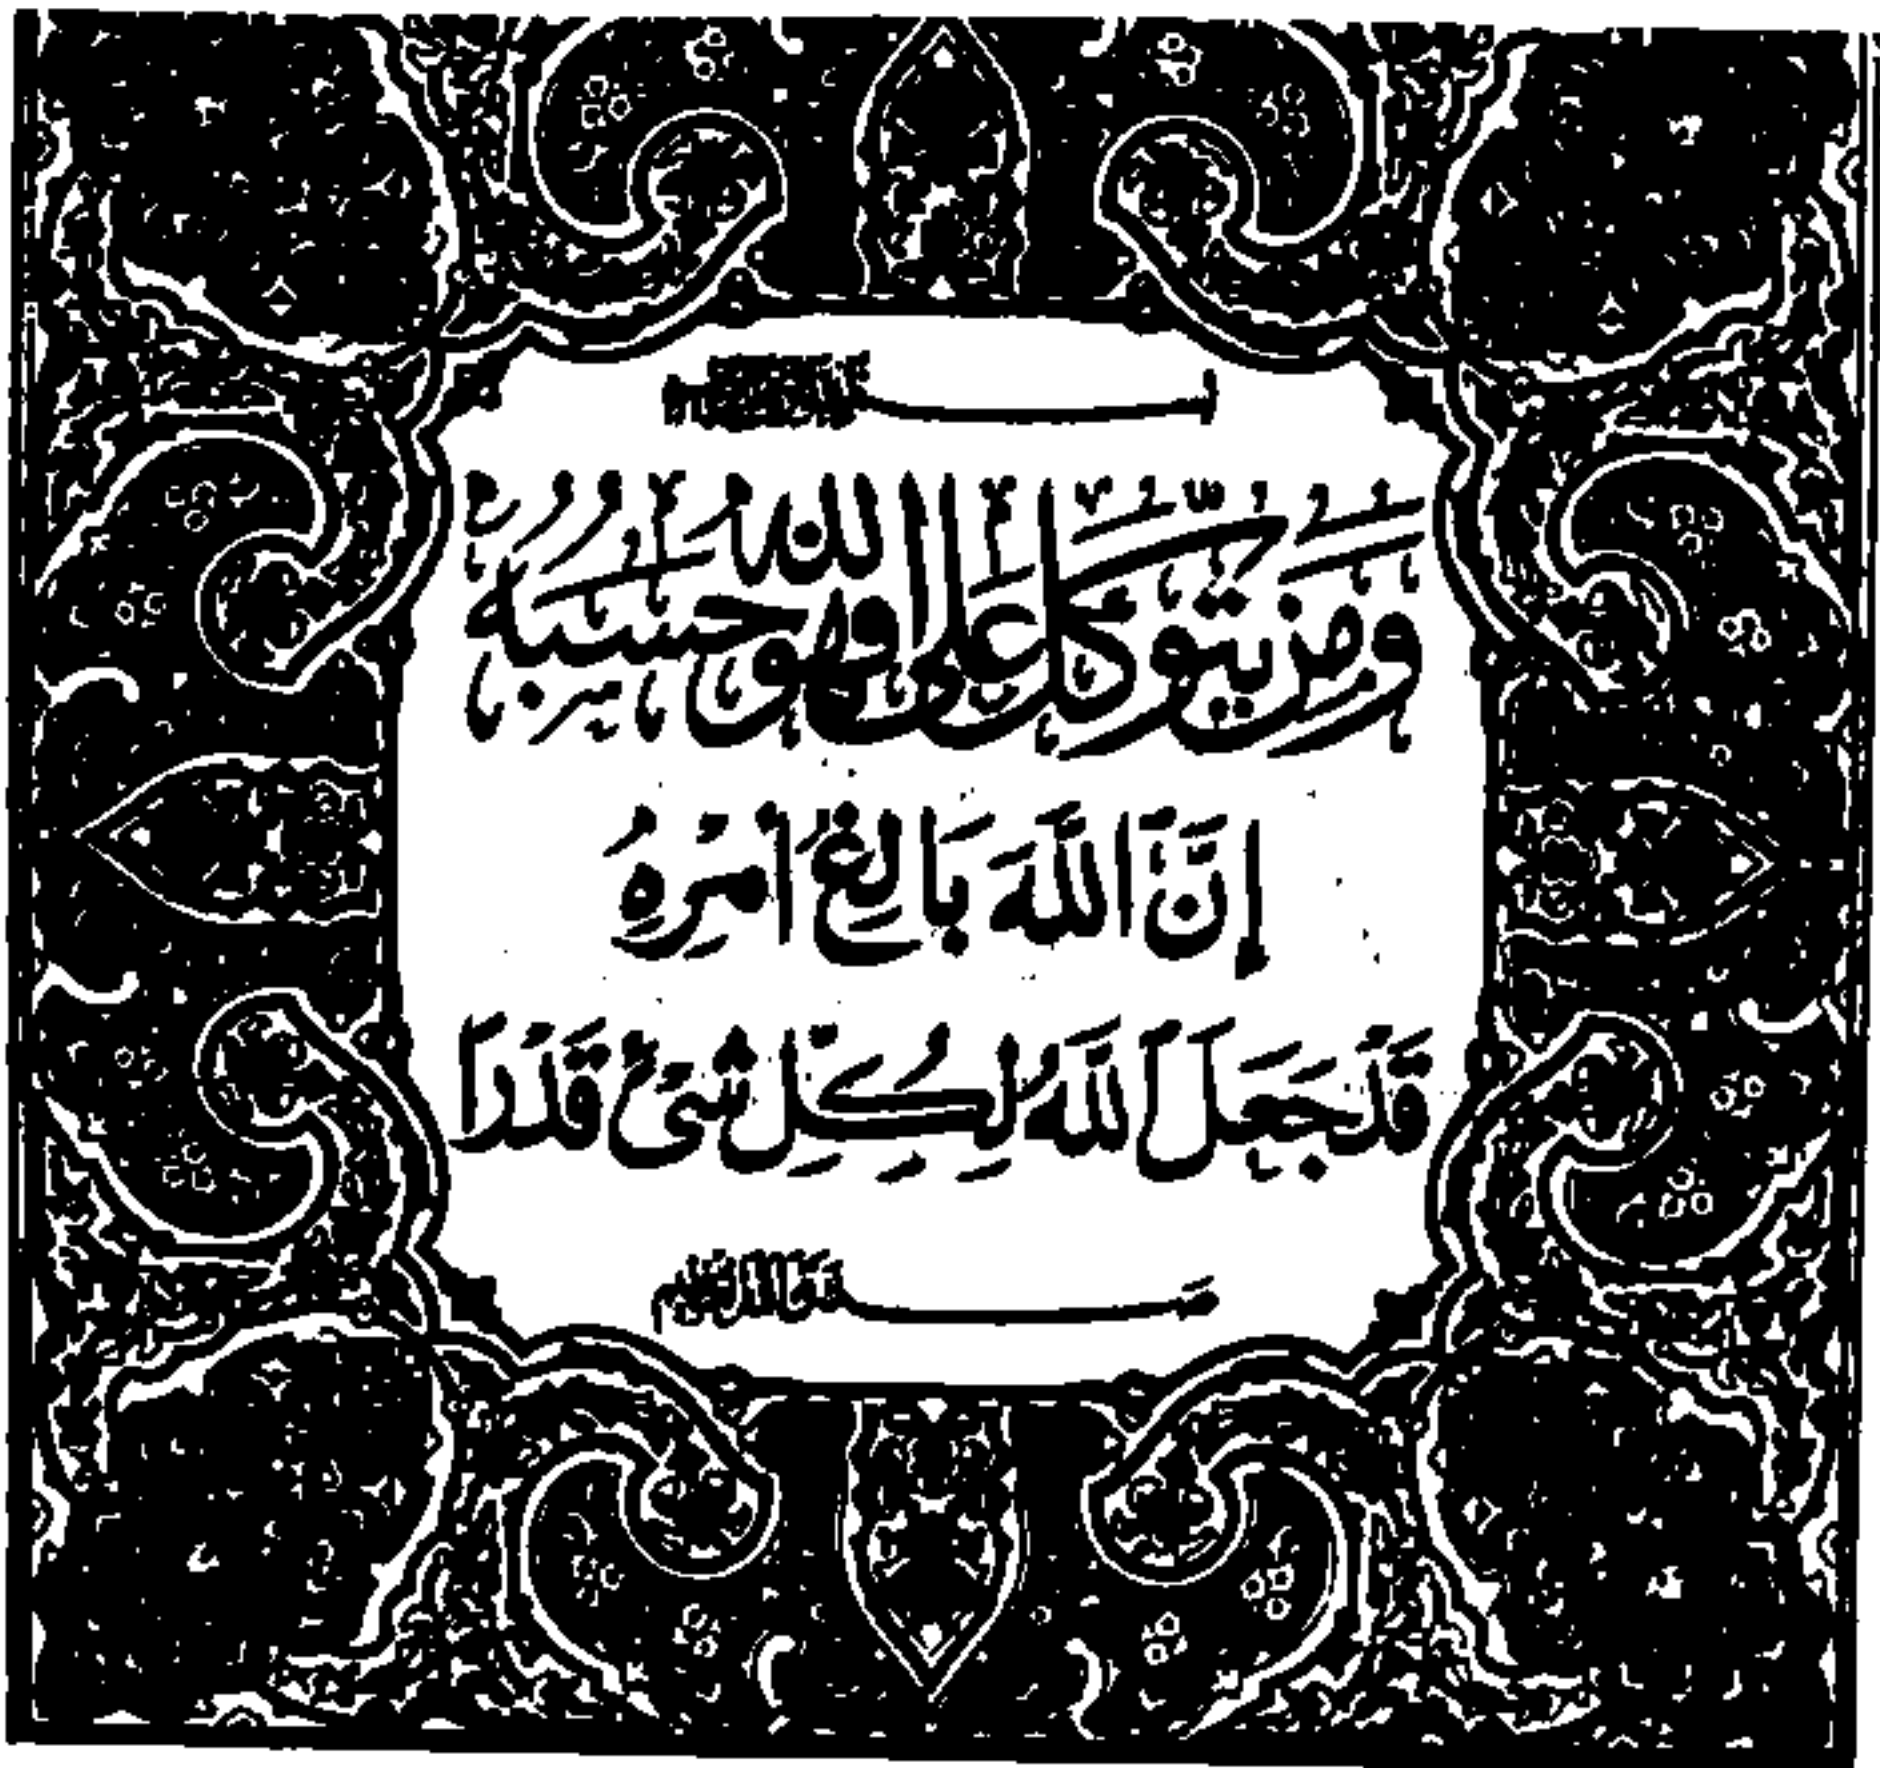 بسم الله الرحمن الرحيم
وَمَن يَتَوَكَّلْ عَلَى اللَّهِ فَهُوَ حَسْبُهُ
إِنَّ اللَّهَ بَالِغُ أَمْرِهِ
قَدْ جَعَلَ اللَّهُ لِكُلِّ شَيْءٍ قَدْرًا